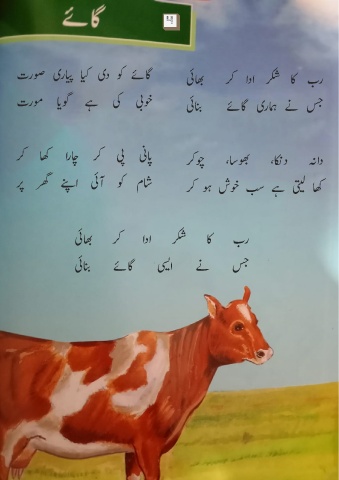 گائے
۴
رب کا شکر ادا کر بھائی
جس نے ہماری گائے بنائی
گائے کو دی کیا پیاری صورت
خوبی کی ہے گویا مورت
دانہ دنکا، بھوسا، چوکر
کھا لیتی ہے سب خوش ہو کر
پانی پی کر چارا کھا کر
شام کو آئی اپنے گھر پر
رب کا شکر ادا کر بھائی
جس نے ایسی گائے بنائی